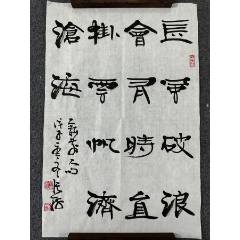 長風破浪
會有時直
掛雲帆濟
滄海